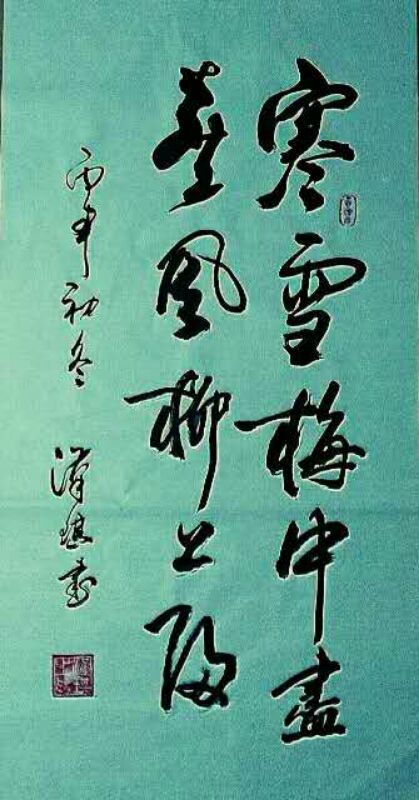 寒雪梅中盡
春風柳上歸
丙申初冬 漢琪書